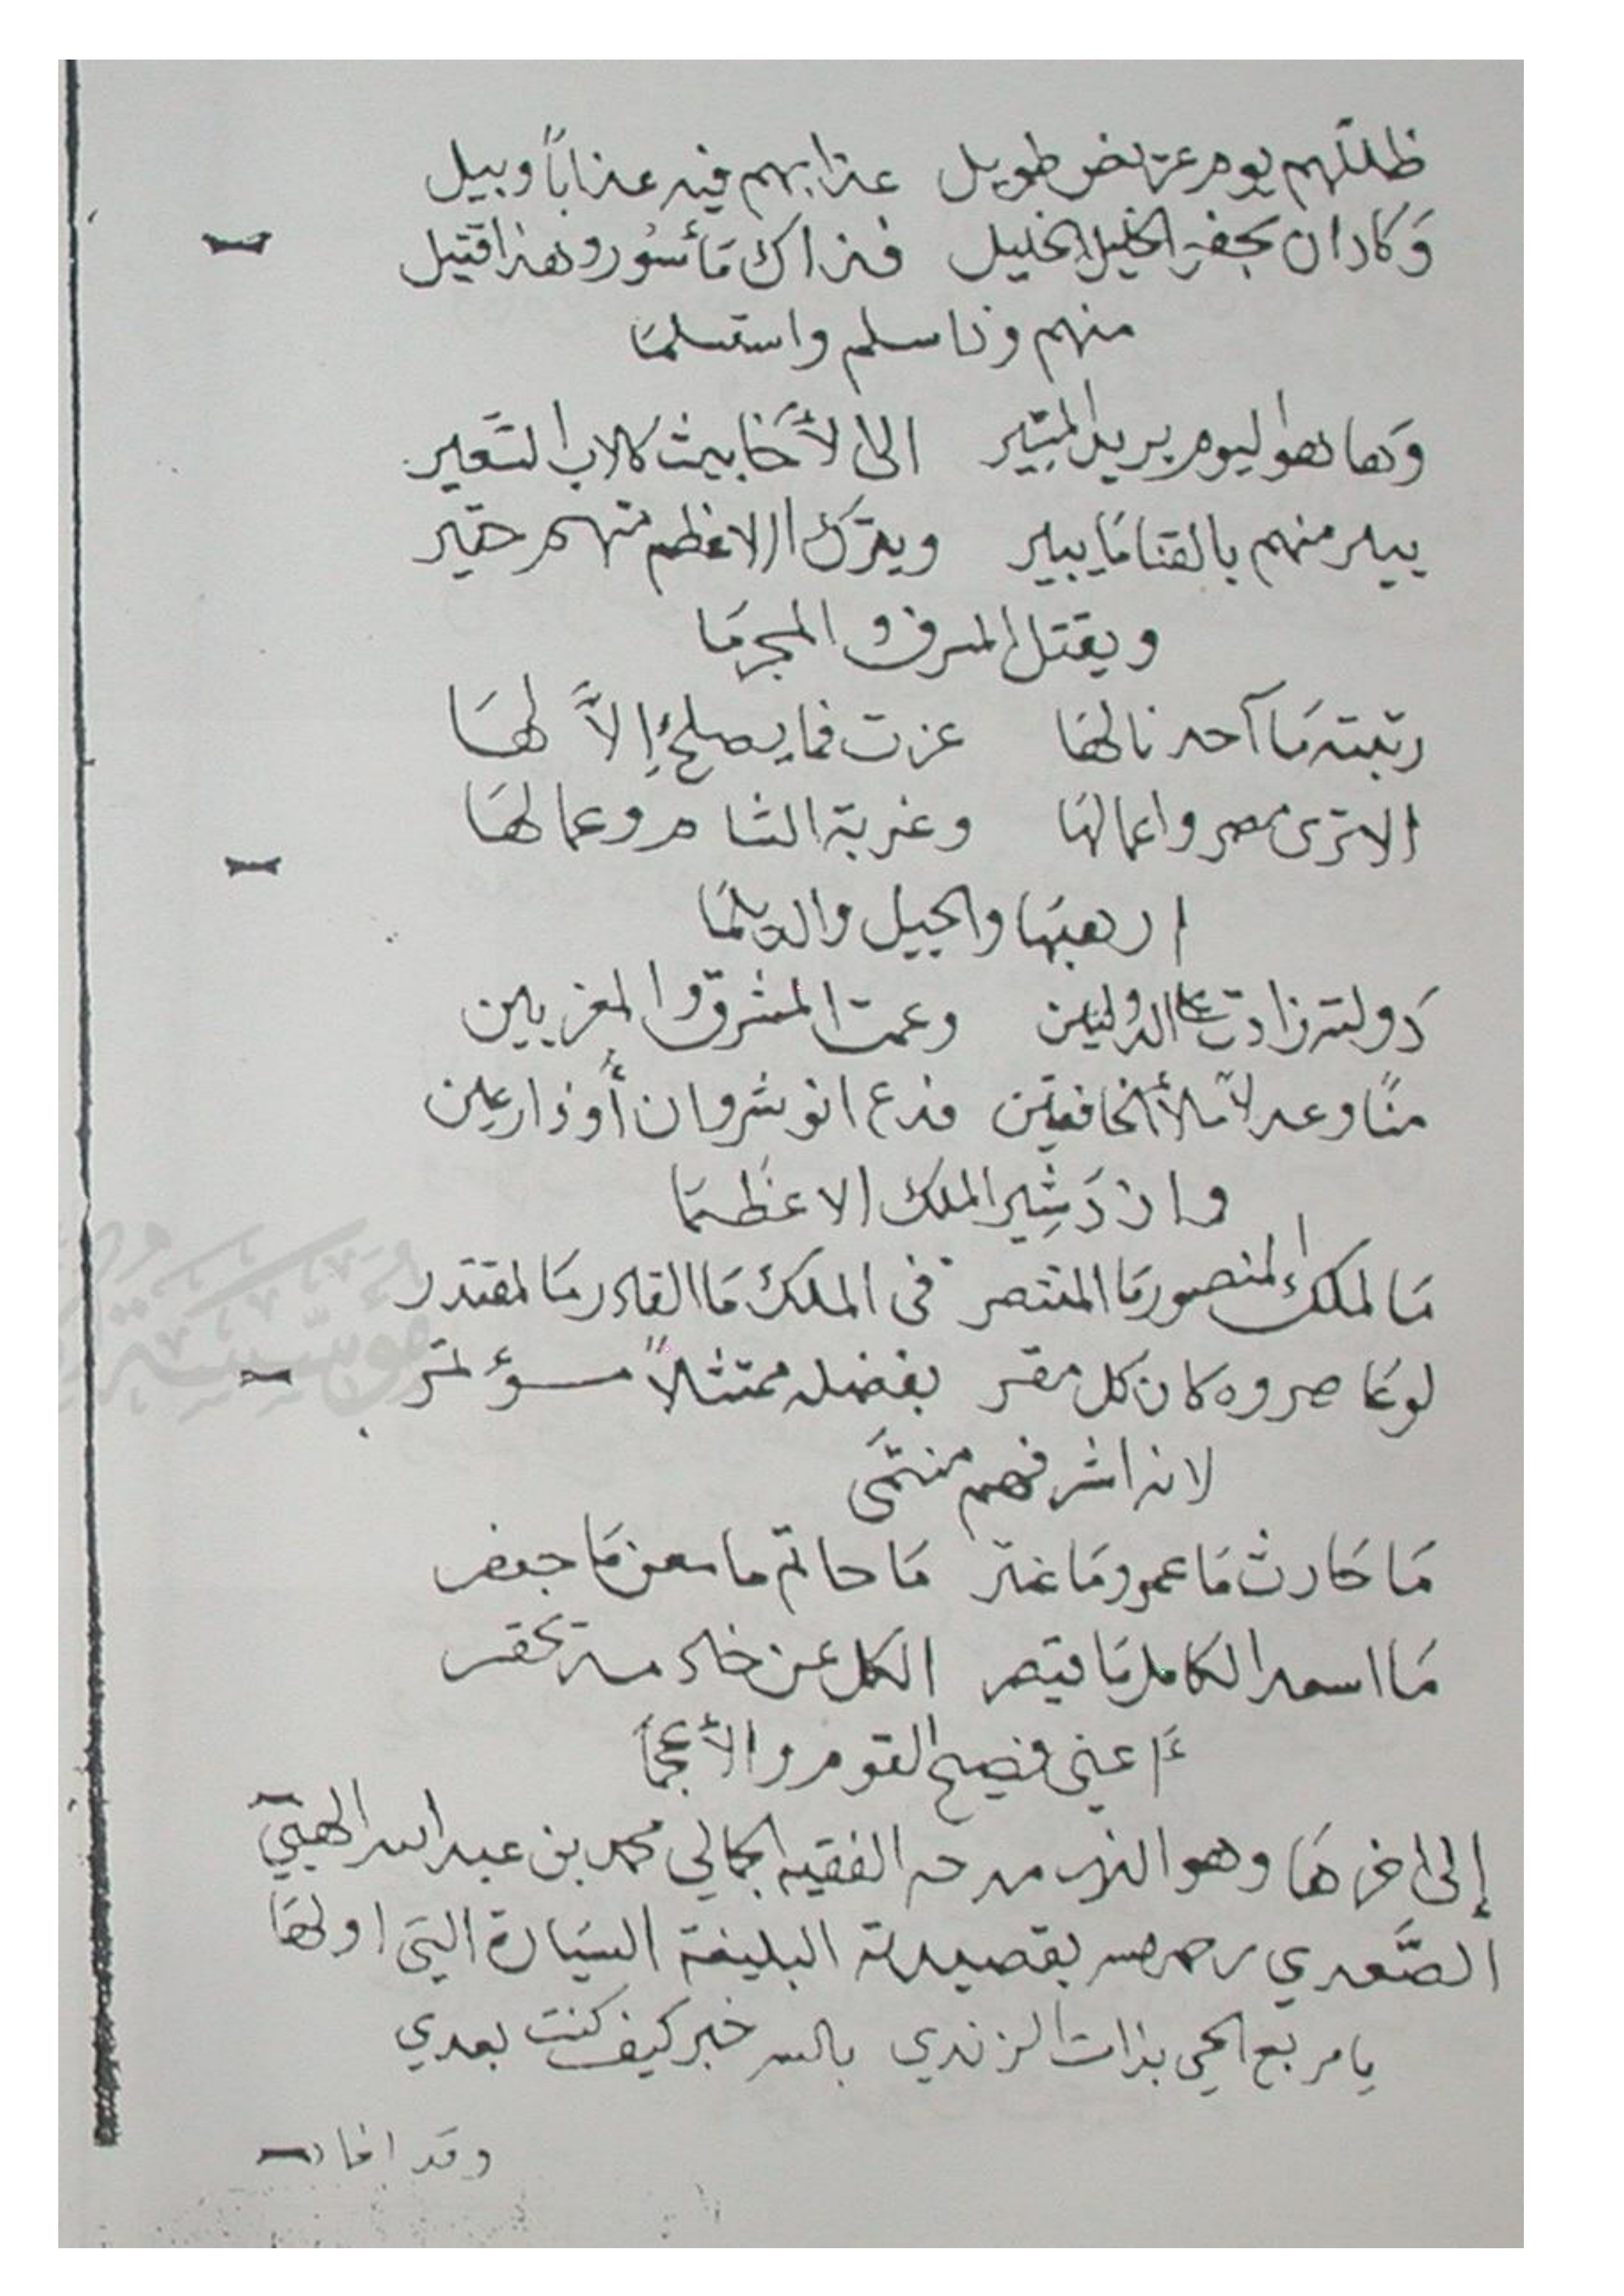 ظللهم يوم عريض طويل عذابهم فيه عذاباً وبيل
وَكادان يجفر الخيل الخليل فذاك مَأسُور وهذا قتيل
منهم وذا سلم واستسلمَا
وَها هو اليوم يريد المسير الى الأخَابيث كلاب السَعير
يبير منهم بالقنا مَا يبير ويترك الاعظم منهم حقير
ويقتل المسرف والمجرمَا
رتبته مَا آحد نالهَا عزت فما يصلح إلاَّ لهَا
الا ترى مصر واعمالهَا وغربة الشام وعمالهَا
ارهبهَا والجيل والديلمَا
دَولته زادت على الدولتين وعمت المشرق والمغربين
منًا وعدلاً ملأ الخافقين فدع انوشروان أو ذارعين
وازدَشِير الملك الاعظمَا
مَا الملك المنصور مَا المنتصر فى الملك مَا القادر مَا المقتدر
لو عَاصروه كان كل مقر بفضله ممتثلاً مؤتمر
لانه اشرفهم منتمَى
مَا حَارث مَا عمرو مَا عنتر مَا حاتم ما معن مَا جعفر
مَا اسعد الكامل مَا قيصر الكل عن خادمه يحقر
أعني فصيح القوم والأعجمَا
إلى اخرهَا وهو الذي مدحه الفقيه الجمالي محمد بن عبد الله الهبتي
الصَّعدي رحمه الله بقصيدته البليغة السيَارة التي اولهَا
يا مربع الحي بذات الرندي بالله خبر كيف كنت بعدي
وقد افاد